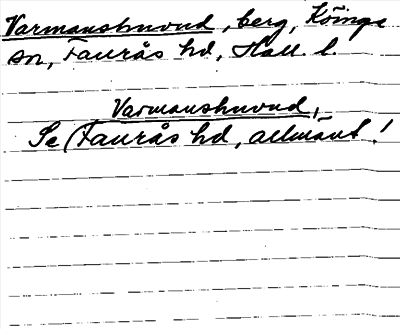 Varmanshuvud, berg, Köinge
sn, Faurås hd, Hall. l.
Varmanshuvud,
Se (Faurås hd, allmänt!